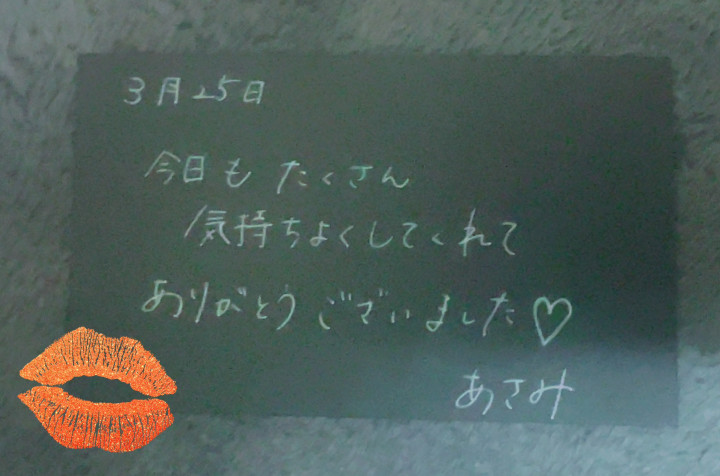 3月25日
今日も たくさん
気持ちよくしてくれて
ありがとうございました♡
あさみ